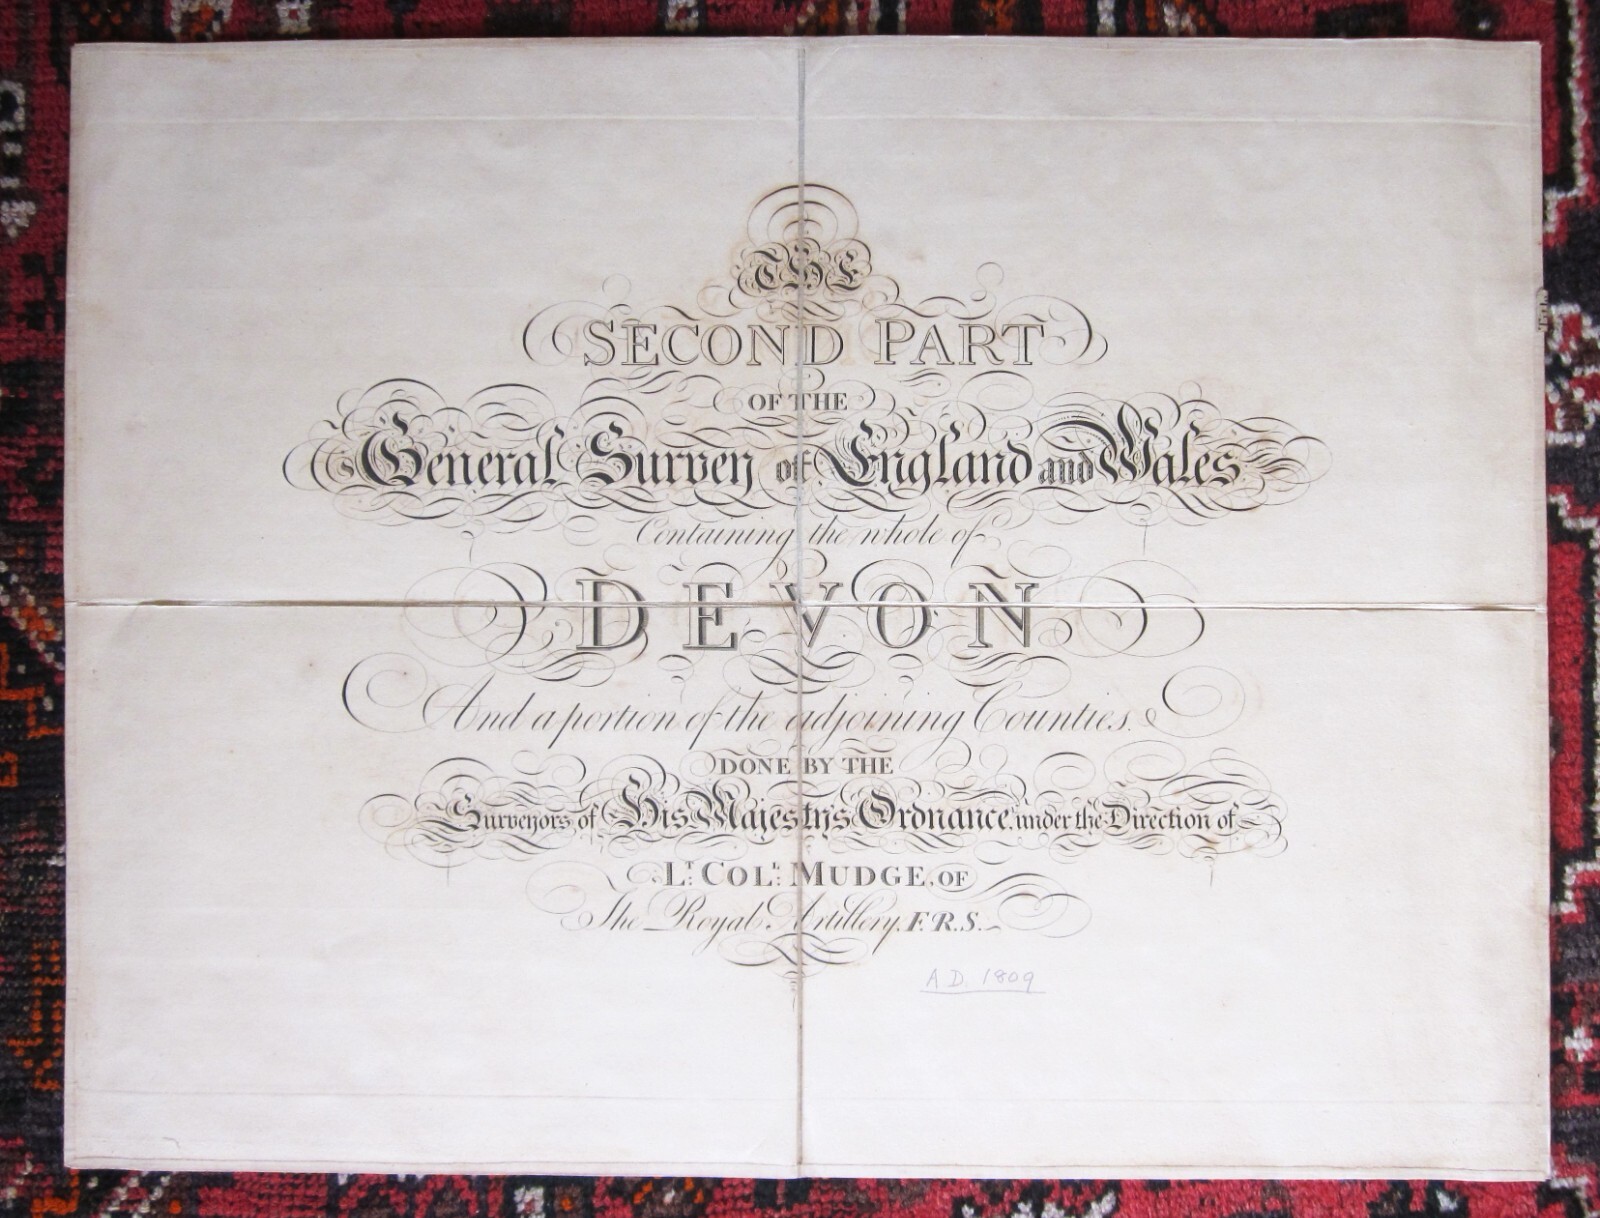 THE
SECOND PART
OF THE
General Survey of England and Wales
Containing the whole of
DEVON
And a portion of the adjoining Counties.
DONE BY THE
Surveyors of His Majesty's Ordnance, under the Direction of
LT. COLL. MUDGE, OF
The Royal Artillery, F.R.S.
A D 1809